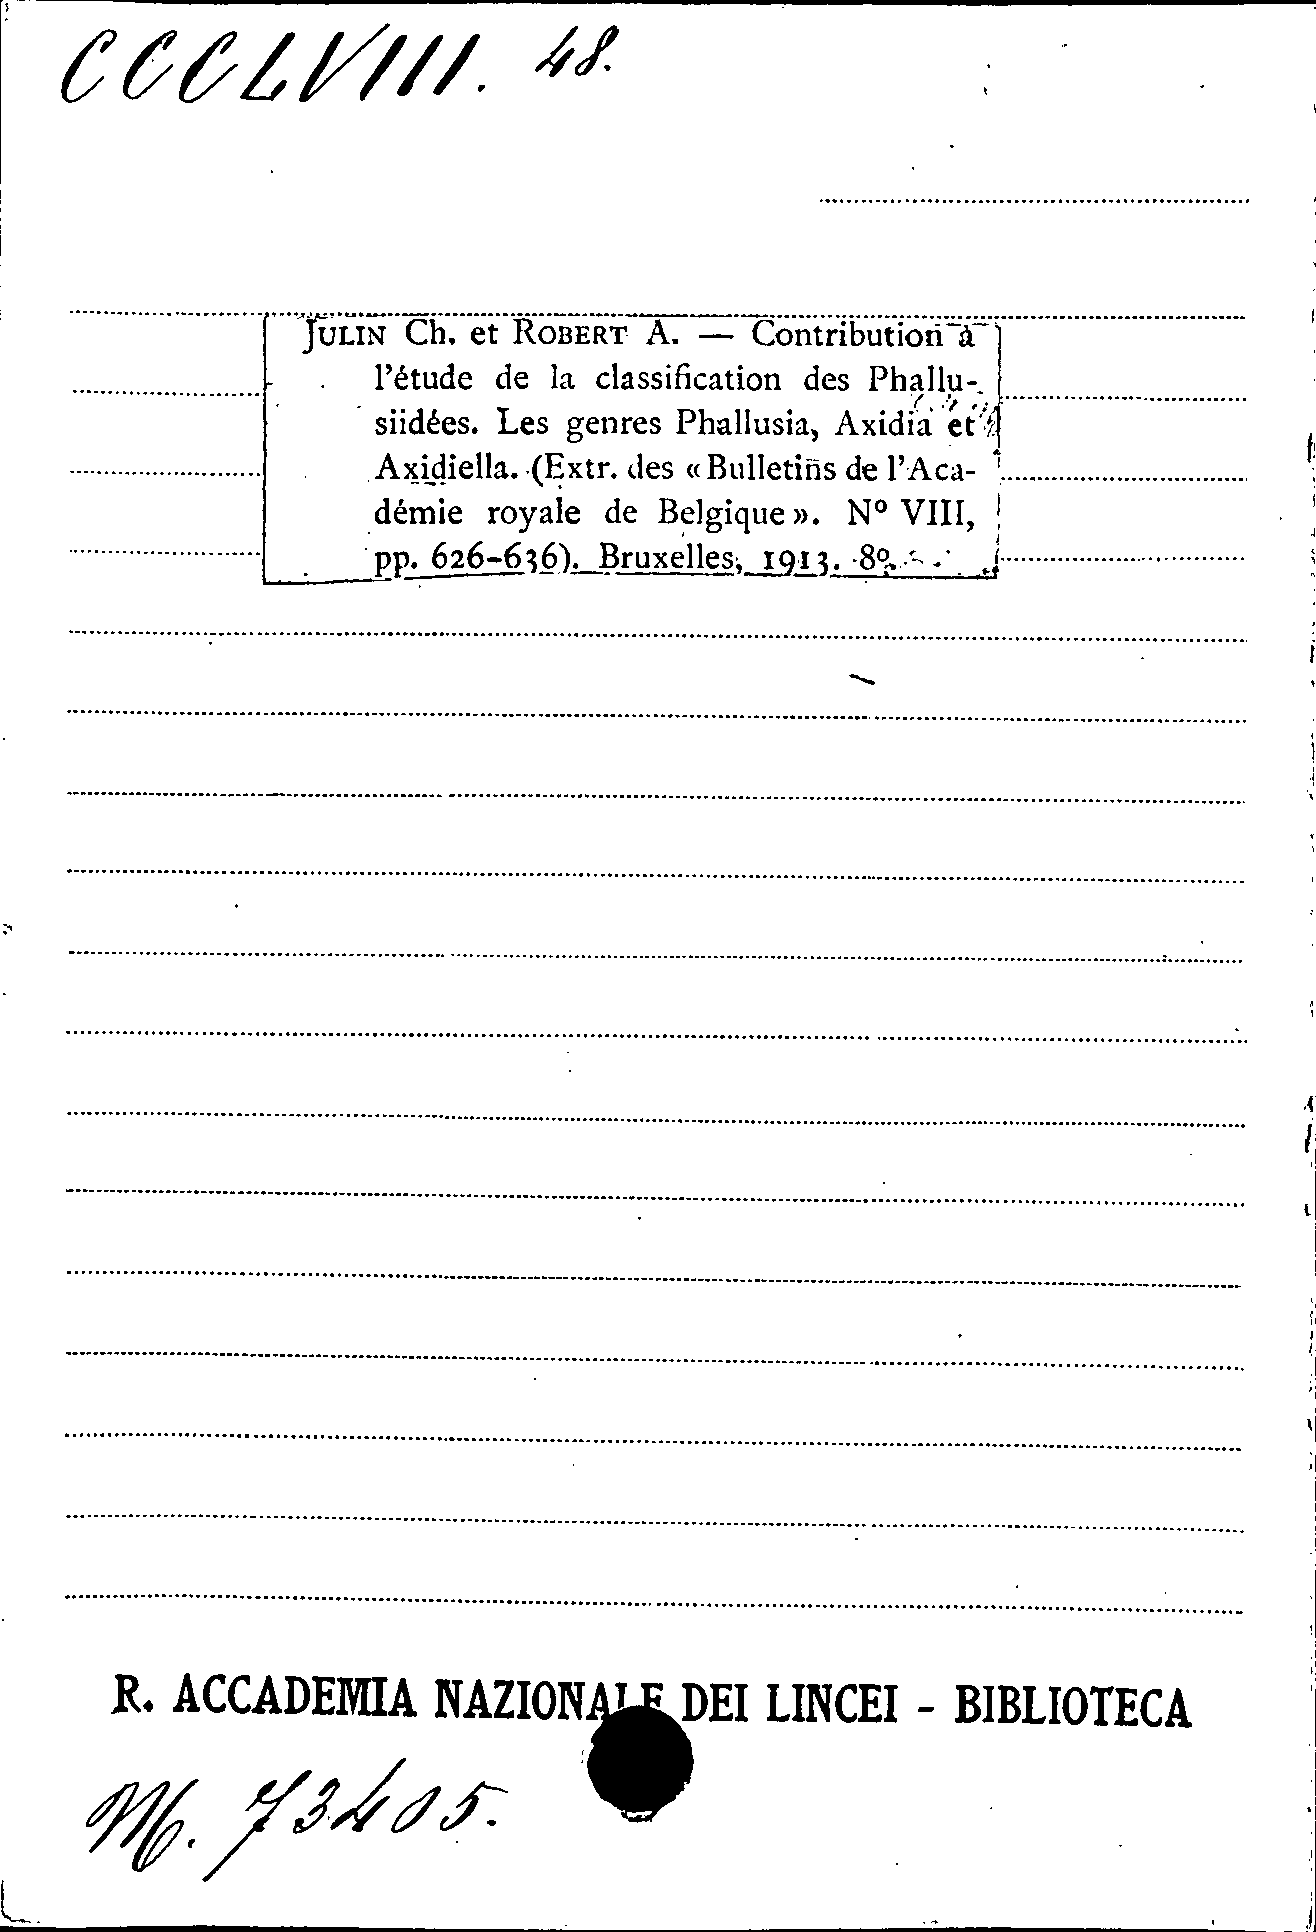 CCCLVIII. 48.
JULIN Ch. et ROBERT A. — Contribution à
l'étude de la classification des Phallu-
siidées. Les genres Phallusia, Axidia et
Axidiella. (Extr. des «Bulletins de l'Aca-
démie royale de Belgique». Nº VIII,
pp. 626-636). Bruxelles, 1913. 8º.
R. ACCADEMIA NAZIONALE DEI LINCEI - BIBLIOTECA
M. 73405.